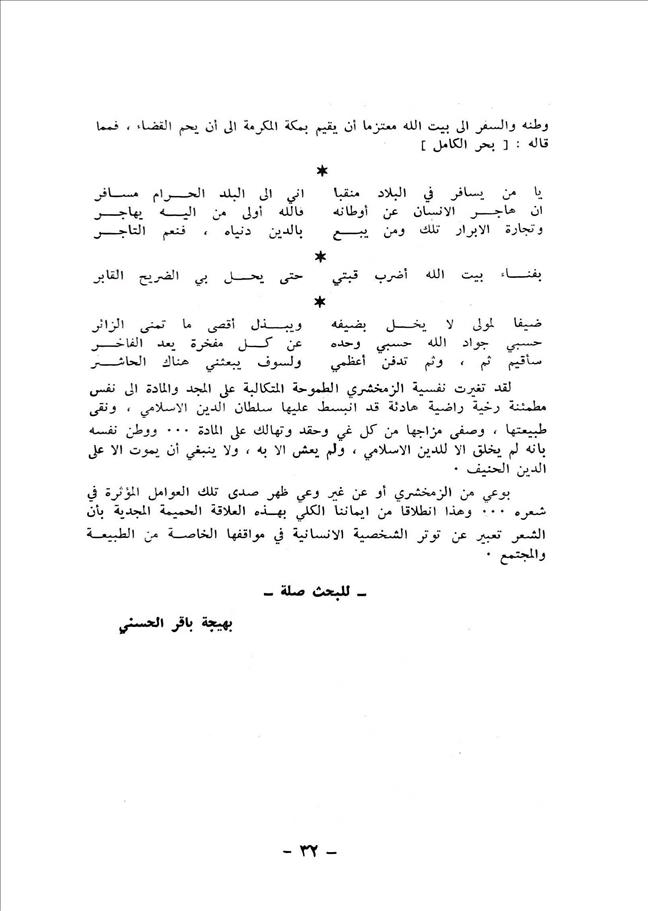 وطنه والسفر الى بيت الله معتزما أن يقيم بمكة المكرمة الى أن يحم القضاء ، فمما
قاله : [ بحر الكامل ]
*
يا من يسافر في البلاد منقبا اني الى البلد الحرام مسافر
ان هاجر الانسان عن أوطانه فالله أولى من اليه يهاجر
وتجارة الابرار تلك ومن يبع بالدين دنياه ، فنعم التاجر
*
بفناء بيت الله أضرب قبتي حتى يحل بي الضريح القابر
*
ضيفا لمولى لا يخل بضيفه ويبذل أقصى ما تمنى الزائر
حسبي جواد الله حسبي وحده عن كل مفخرة يعد الفاخر
سأقيم ثم ، وثم تدفن أعظمي ولسوف يبعثني هناك الحاشر
لقد تغيرت نفسية الزمخشري الطموحة المتكالبة على المجد والمادة الى نفس
مطمئنة رخية راضية هادئة قد انبسط عليها سلطان الدين الاسلامي ، ونقى
طبيعتها ، وصفى مزاجها من كل غي وحقد وتهالك على المادة ٠٠٠ ووطن نفسه
بانه لم يخلق الا للدين الاسلامي ، ولم يعش الا به ، ولا ينبغي أن يموت الا على
الدين الحنيف ٠
بوعي من الزمخشري أو عن غير وعي ظهر صدى تلك العوامل المؤثرة في
شعره ٠٠٠ وهذا انطلاقا من ايماننا الكلي بهذه العلاقة الحميمة المجدية بأن
الشعر تعبير عن توتر الشخصية الانسانية في مواقفها الخاصة من الطبيعة
والمجتمع ٠
ـ للبحث صلة ـ
بهيجة باقر الحسني
- ٣٢ -